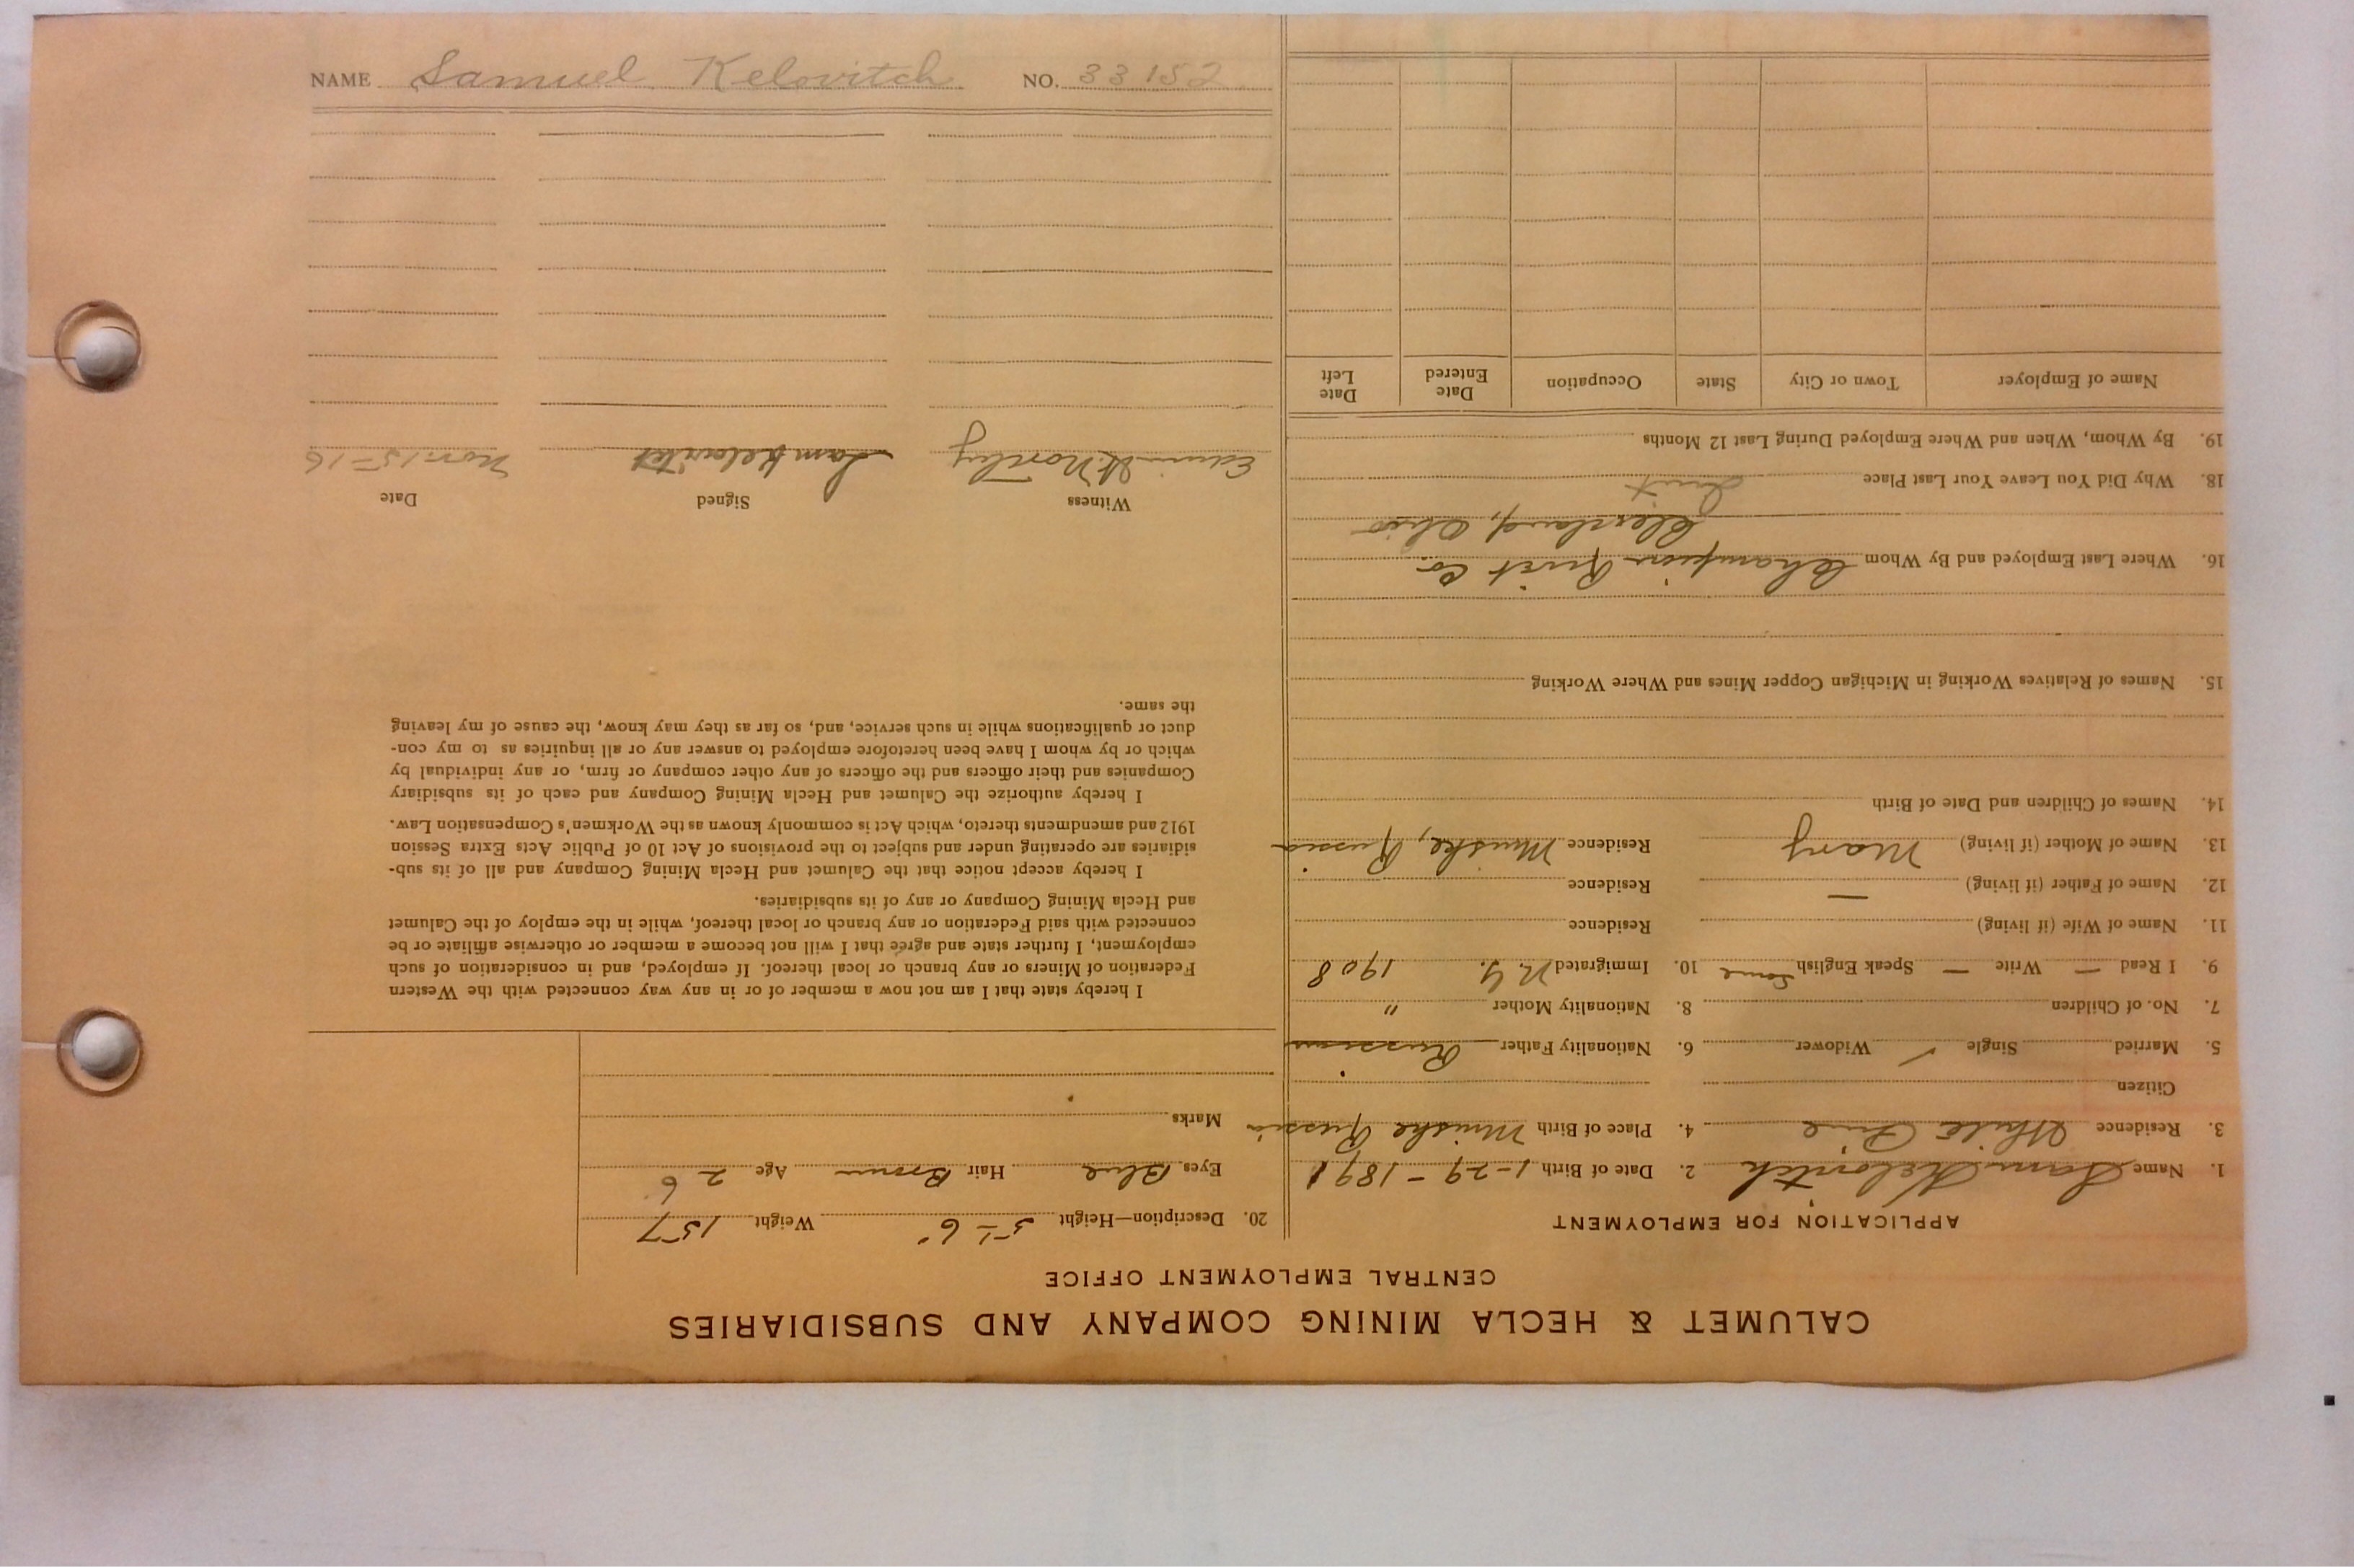 CALUMET & HECLA MINING COMPANY AND SUBSIDIARIES
CENTRAL EMPLOYMENT OFFICE
APPLICATION FOR EMPLOYMENT
1. Name Sam Kelovitch 2. Date of Birth 1-29-1891
3. Residence White Pine 4. Place of Birth Minske Russia
Citizen
5. Married Single ✓ Widower 6. Nationality Father Russian
7. No. of Children 8. Nationality Mother "
9. I Read — Write — Speak English Some 10. Immigrated N.Y. 1908
11. Name of Wife (if living) Residence
12. Name of Father (if living) — Residence
13. Name of Mother (if living) Mary Residence Minske, Russia
14. Names of Children and Date of Birth
15. Names of Relatives Working in Michigan Copper Mines and Where Working
16. Where Last Employed and By Whom Champion Rivit Co
Cleveland, Ohio
18. Why Did You Leave Your Last Place Quit
19. By Whom, When and Where Employed During Last 12 Months
Name of Employer Town or City State Occupation Date Entered Date Left
20. Description—Height 5-6" Weight 157
Eyes Blue Hair Brown Age 26
Marks
I hereby state that I am not now a member of or in any way connected with the Western
Federation of Miners or any branch or local thereof. If employed, and in consideration of such
employment, I further state and agree that I will not become a member or otherwise affiliate or be
connected with said Federation or any branch or local thereof, while in the employ of the Calumet
and Hecla Mining Company or any of its subsidiaries.
I hereby accept notice that the Calumet and Hecla Mining Company and all of its sub-
sidiaries are operating under and subject to the provisions of Act 10 of Public Acts Extra Session
1912 and amendments thereto, which Act is commonly known as the Workmen's Compensation Law.
I hereby authorize the Calumet and Hecla Mining Company and each of its subsidiary
Companies and their officers and the officers of any other company or firm, or any individual by
which or by whom I have been heretofore employed to answer any or all inquiries as to my con-
duct or qualifications while in such service, and, so far as they may know, the cause of my leaving
the same.
Witness Signed Date
Edwin H. Sam Kelovitch Nov. 15-16
NAME Samuel Kelovitch NO. 33152